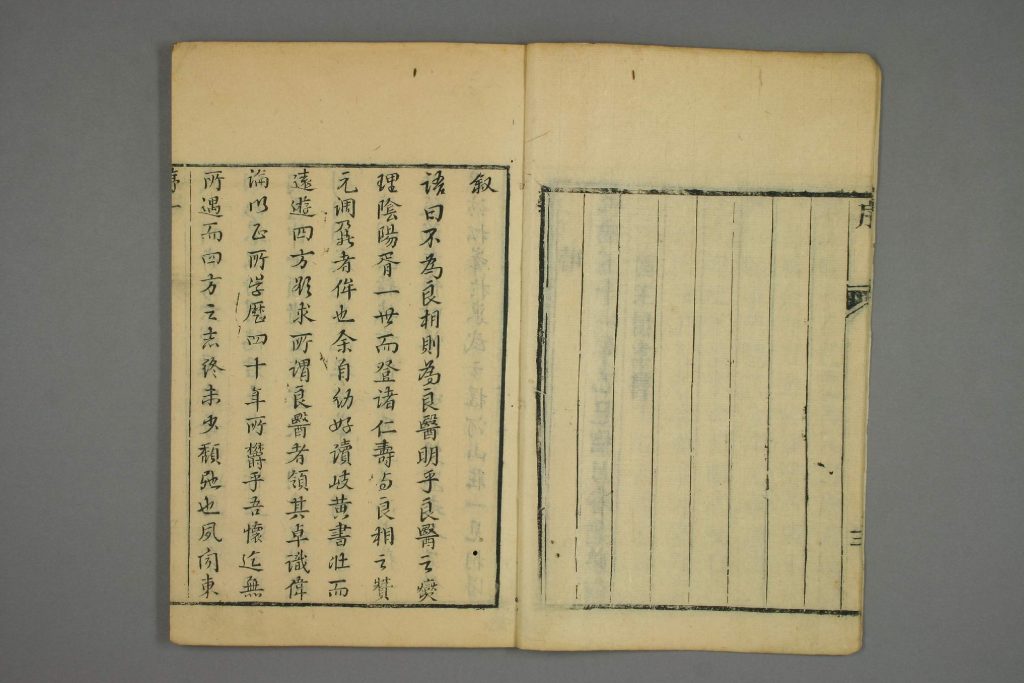 序
三
敘
語曰不為良相則為良醫明乎良醫之燮
理陰陽胥一世而登諸仁壽与良相之贊
元調鼎者侔也余自幼好讀岐黃書壯而
遠遊四方欲求所謂良醫者領其卓識偉
論以正所學歷四十年所欝乎吾懷迄無
所遇而四方之志終未少頹弛也夙聞東
序一